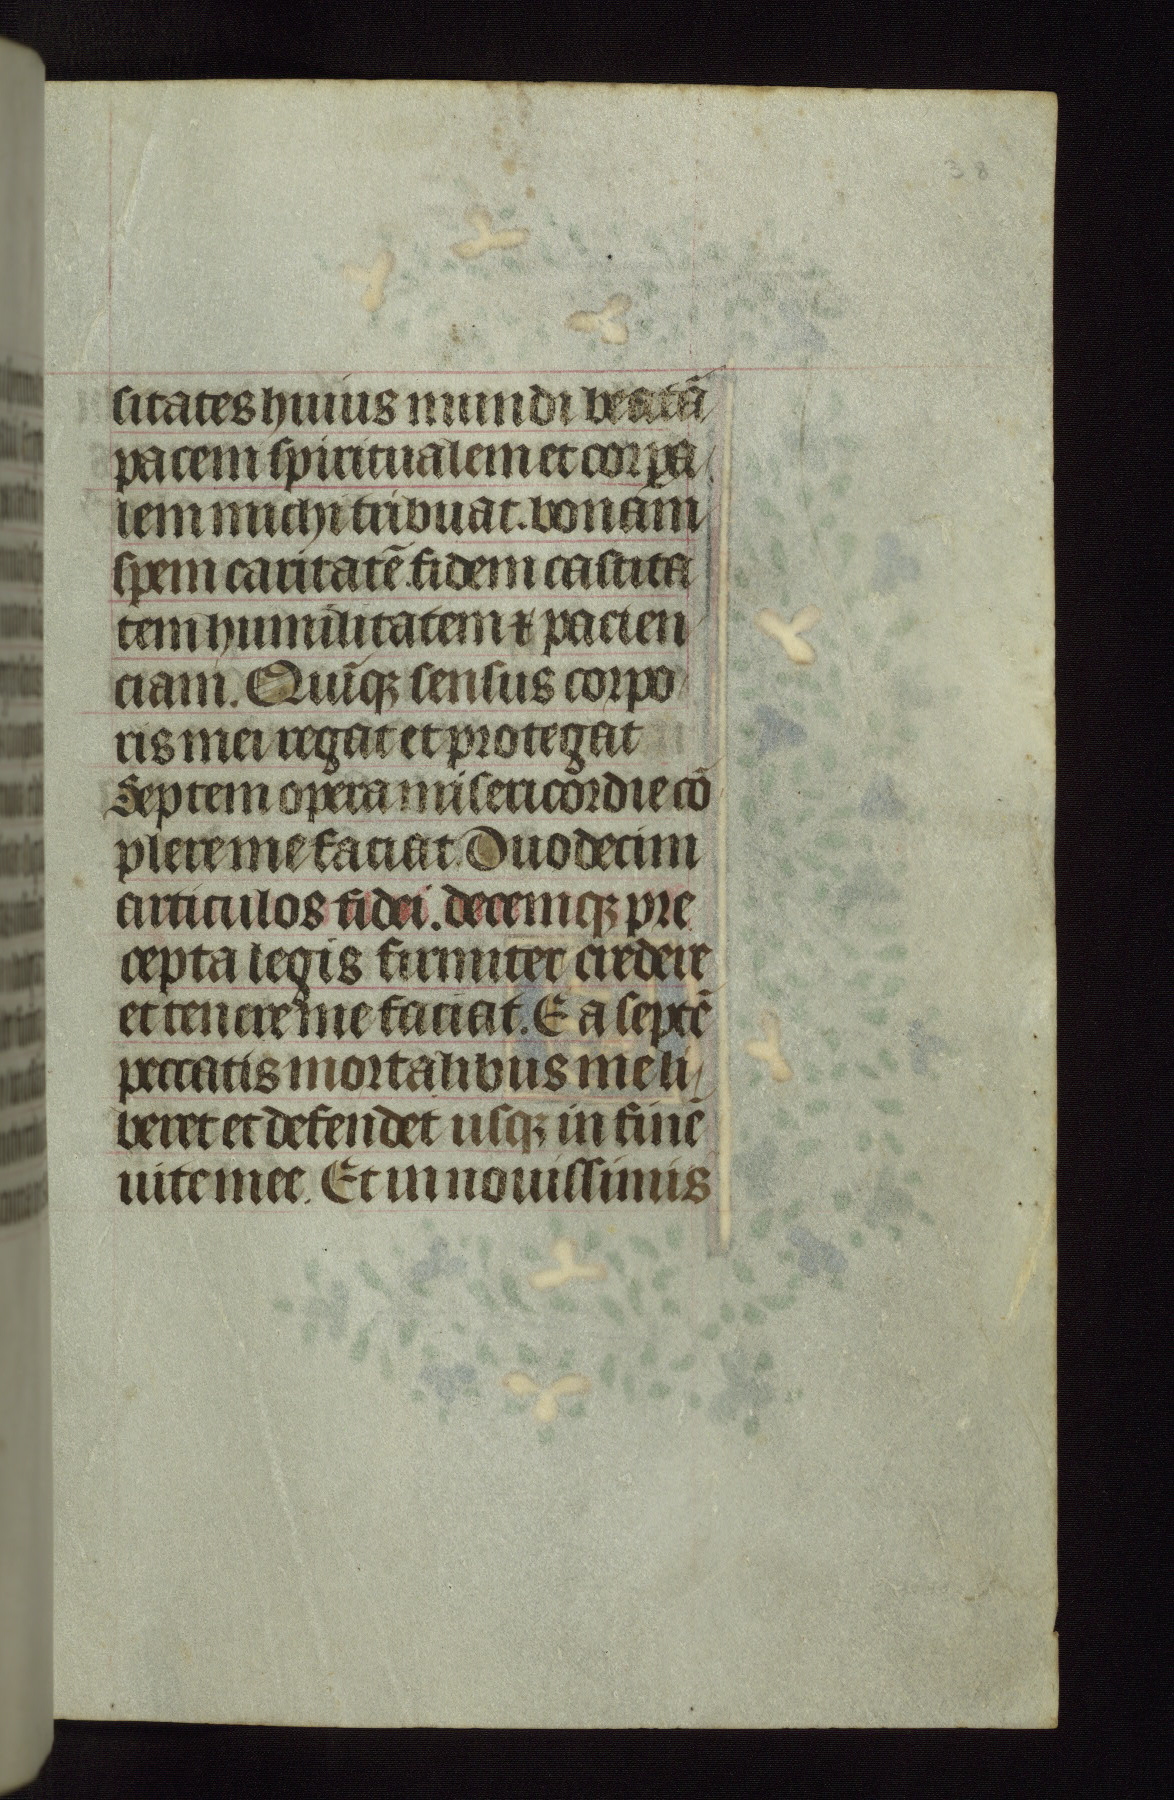 38
sitates huius mundi beatā
pacem spiritualem et corpa
lem michi tribuat. bonam
spem caritatē fidem castita
tem humilitatem ⁊ pacien
ciam. Quīqꝫ sensus corpo
ris mei regat et protegat
Septem opera misericordie cō
plere me faciat Duodecim
articulos fidei. decemqꝫ pre
cepta legis firmiter credere
et tenere me faciat. E a septē
peccatis mortalibus me li
beret et defendet usqꝫ in finē
uite mee. Et in nouissimis